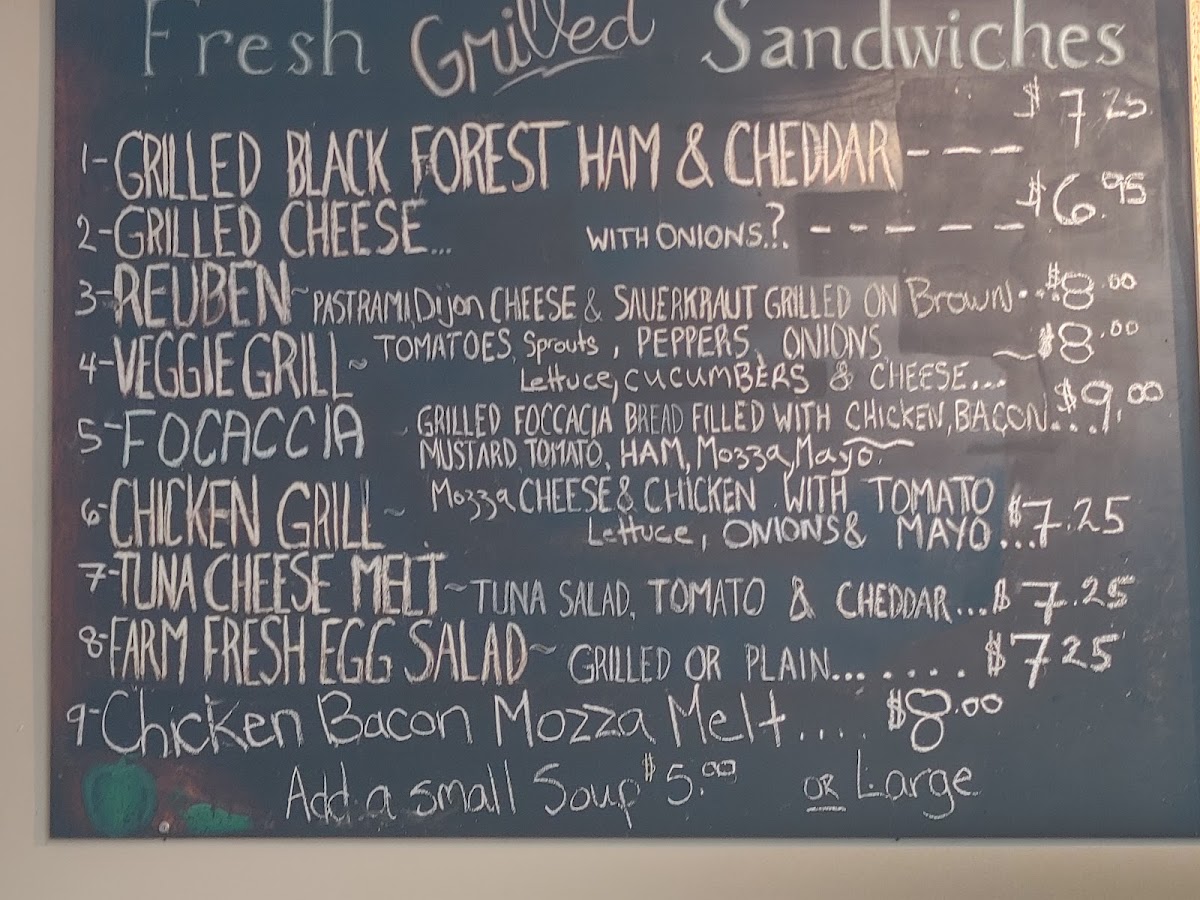 Fresh Grilled Sandwiches
1-GRILLED BLACK FOREST HAM & CHEDDAR ---- $7.25
2-GRILLED CHEESE... WITH ONIONS.?. ----- $6.95
3-REUBEN~ PASTRAMI, Dijon CHEESE & SAUERKRAUT GRILLED ON Brown...$8.00
4-VEGGIE GRILL~ TOMATOES, Sprouts, PEPPERS, ONIONS ~$8.00
Lettuce, CUCUMBERS & CHEESE...
5-FOCACCIA ~ GRILLED FOCCACIA BREAD FILLED WITH CHICKEN, BACON...$9.00
MUSTARD, TOMATO, HAM, Mozza, Mayo
6-CHICKEN GRILL~ Mozza CHEESE & CHICKEN WITH TOMATO
Lettuce, ONIONS & MAYO...$7.25
7-TUNA CHEESE MELT~TUNA SALAD, TOMATO & CHEDDAR...$7.25
8-FARM FRESH EGG SALAD~ GRILLED OR PLAIN....... $7.25
9-Chicken Bacon Mozza Melt.... $8.00
Add a small Soup $5.00 OR Large